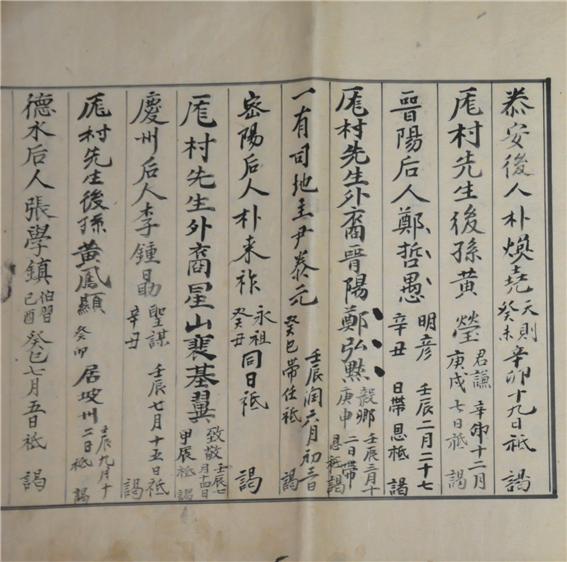 泰安後人朴煥堯 天則 癸未 辛卯十九日祗謁
厖村先生後孫黃瑩 君謙 庚戌 辛卯十二月 七日祗謁
晋陽后人鄭哲愚 明彦 辛丑 壬辰二月二十七 日帶恩祗謁
厖村先生外裔晋陽鄭弘黙 毅卿 庚申 壬辰三月十 二日帶 恩祗謁
一有司地主尹泰元 癸巳 壬辰閏六月初三日 帶仕祗謁
密陽后人朴来祚 永祖 癸丑 同日祗謁
厖村先生外裔星山裵基翼 致敬 甲辰 壬辰七 月十四日 祗謁
慶州后人李鍾勗 聖謀 辛丑 壬辰七月十五日祗謁
厖村先生後孫黃鳳顯 癸卯 居坡州 壬辰九月十 二日祗謁
德水后人張學鎮 伯習 己酉 癸巳七月五日祗謁